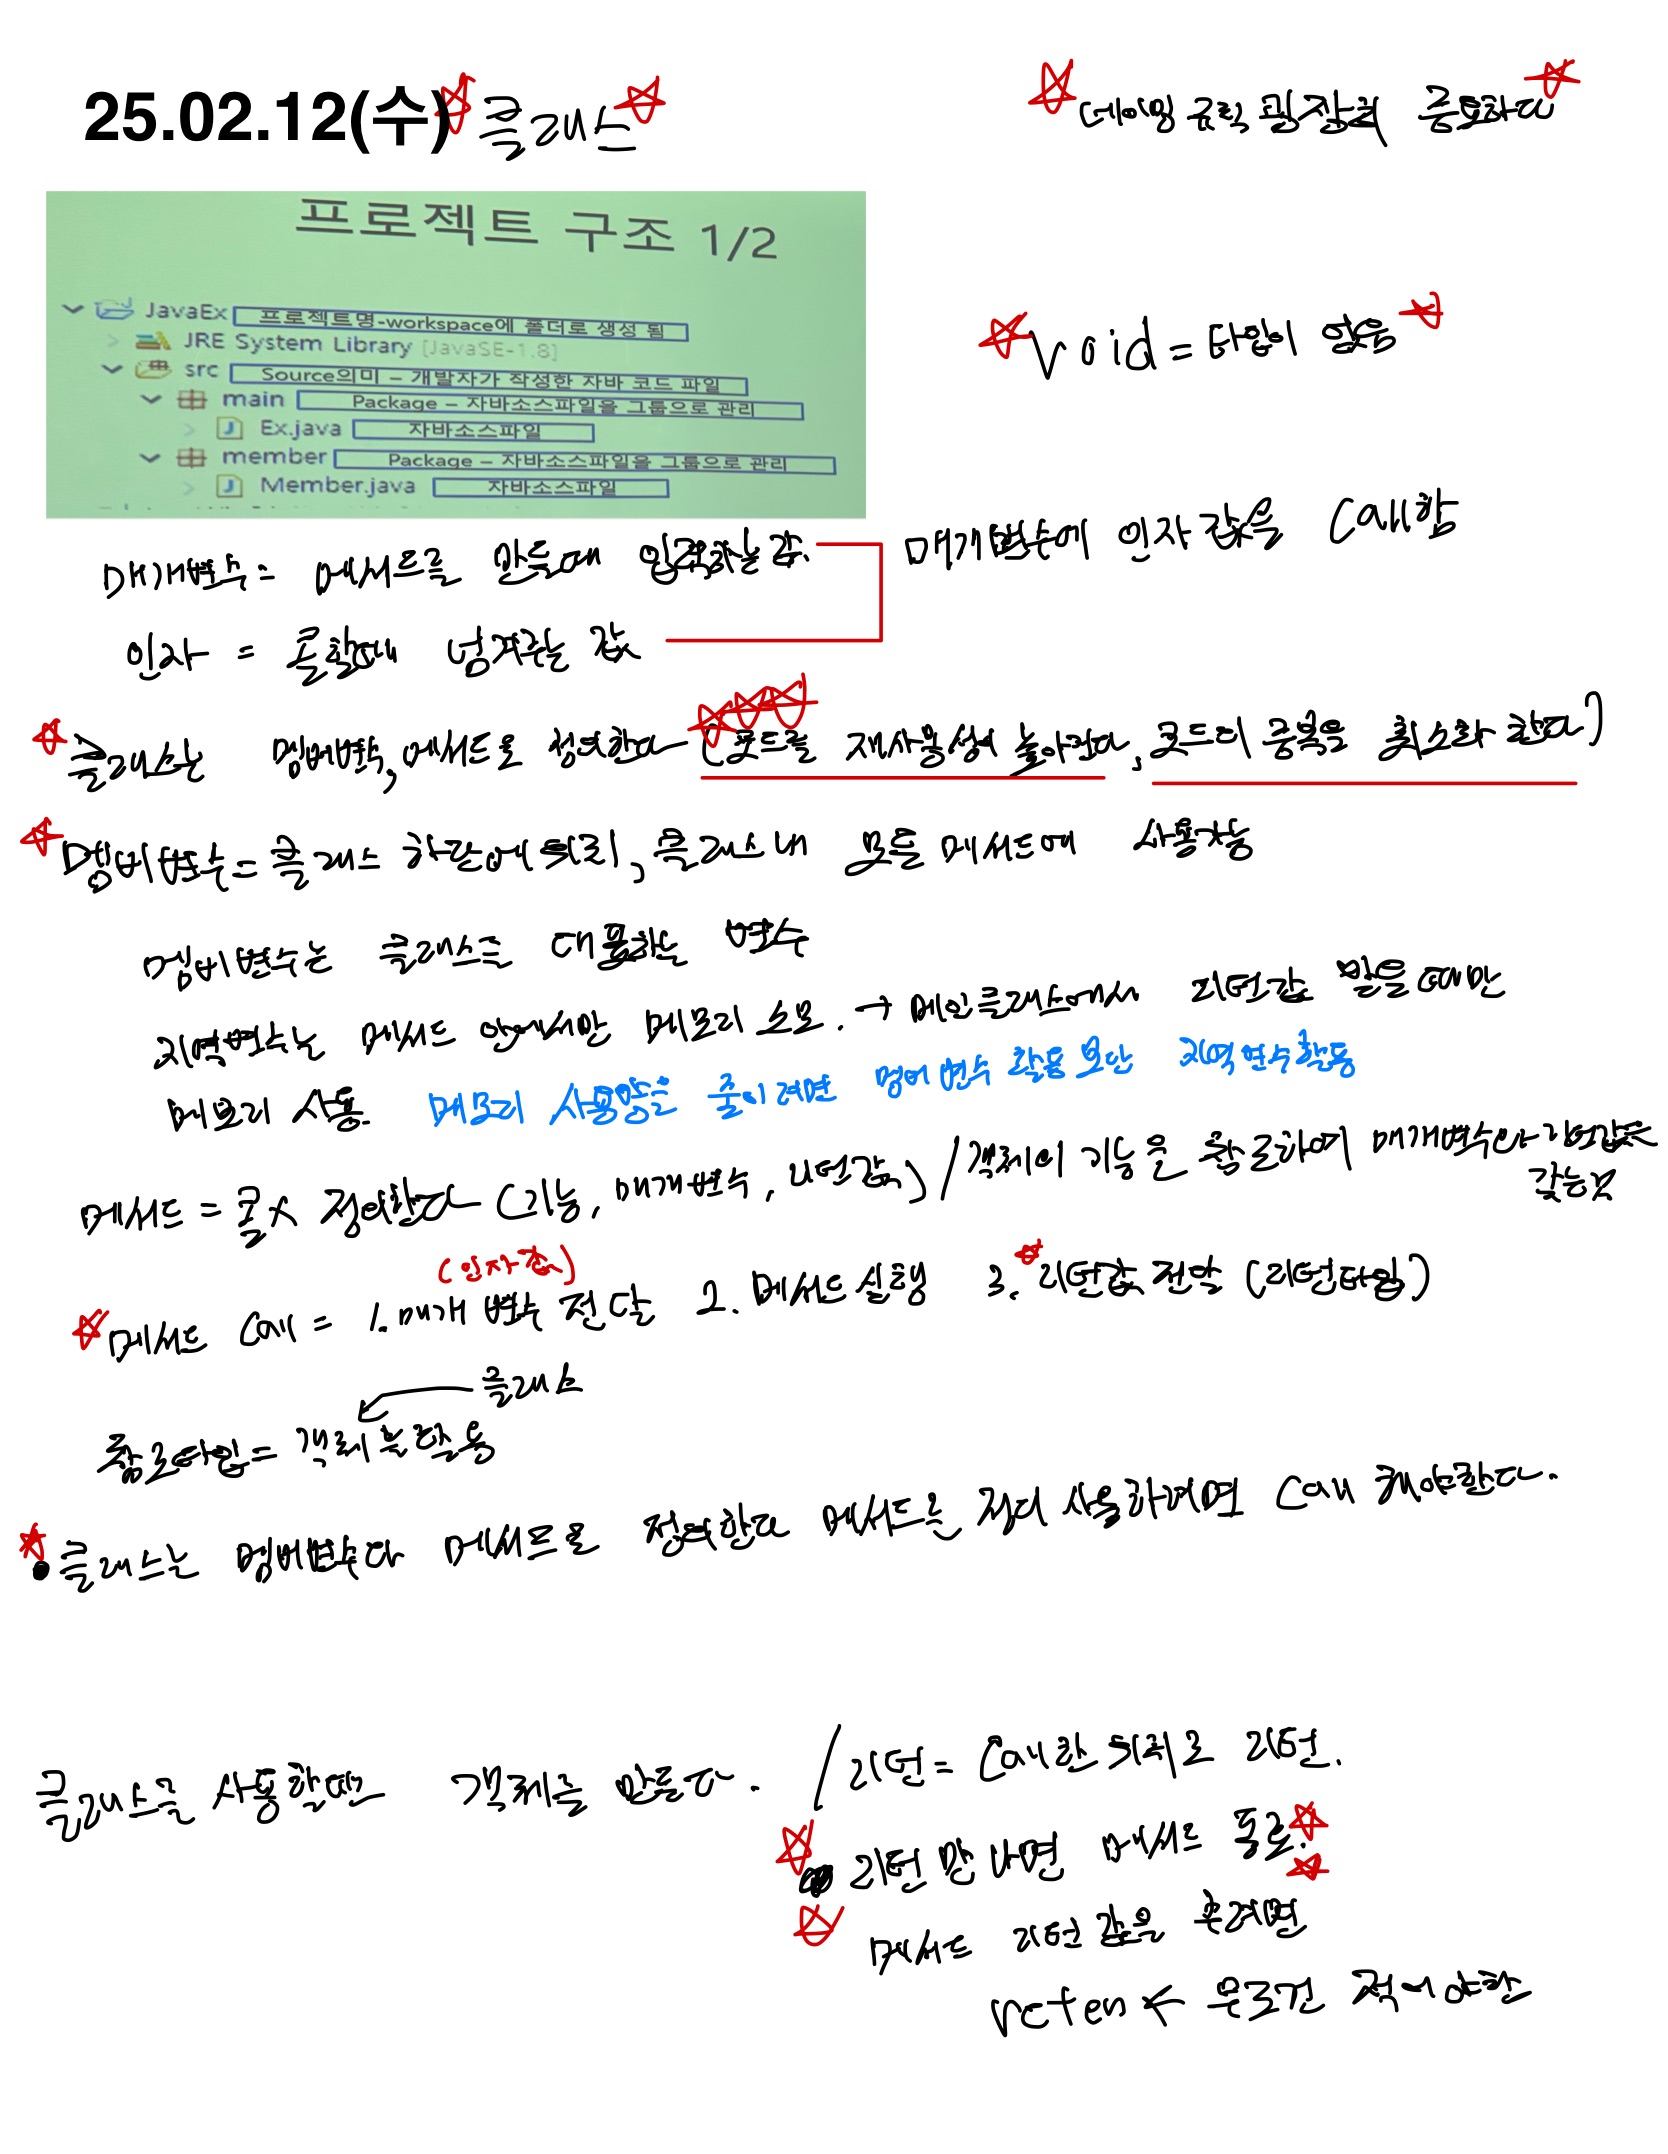 25.02.12(수) 클래스
네이밍 규칙 굉장히 중요하다
프로젝트 구조 1/2
JavaEx 프로젝트명-workspace에 폴더로 생성 됨
JRE System Library [JavaSE-1.8]
src Source의미 – 개발자가 작성한 자바 코드 파일
main Package – 자바소스파일을 그룹으로 관리
Ex.java 자바소스파일
member Package – 자바소스파일을 그룹으로 관리
Member.java 자바소스파일
void = 타입이 없음
매개변수 = 메서드를 만들때 입력하는 값.
매개변수에 인자 값을 Call함
인자 = 콜할때 넘겨주는 값
클래스는 멤버변수, 메서드로 정의한다 (코드를 재사용성이 높아진다, 코드의 중복을 최소화 한다)
멤버변수 = 클래스 하단에 위치, 클래스 내 모든 메서드에 사용가능
멤버변수는 클래스를 대표하는 변수
지역변수는 메서드 안에서만 메모리 소모. → 메인클래스에서 리턴값 받을때만
메모리 사용 메모리 사용량을 줄이려면 멤버 변수 활용보단 지역변수활용
메서드 = 콜X 정의한다 (기능, 매개변수, 리턴값) / 객체의 기능을 활용하여 매개변수와 리턴값을
갖는것
(인자값)
메서드 Call = 1. 매개변수 전달 2. 메서드 실행 3. 리턴값 전달 (리턴타입)
클래스
참조타입 = 객체를 활용
클래스는 멤버변수와 메서드로 정의한다 메서드를 정의 사용하려면 Call 해야한다.
클래스를 사용할때는 객체를 만든다.
/ 리턴 = Call한 위치로 리턴.
리턴 만나면 메서드 종료.
메서드 리턴 값을 주려면
무조건 적어야함